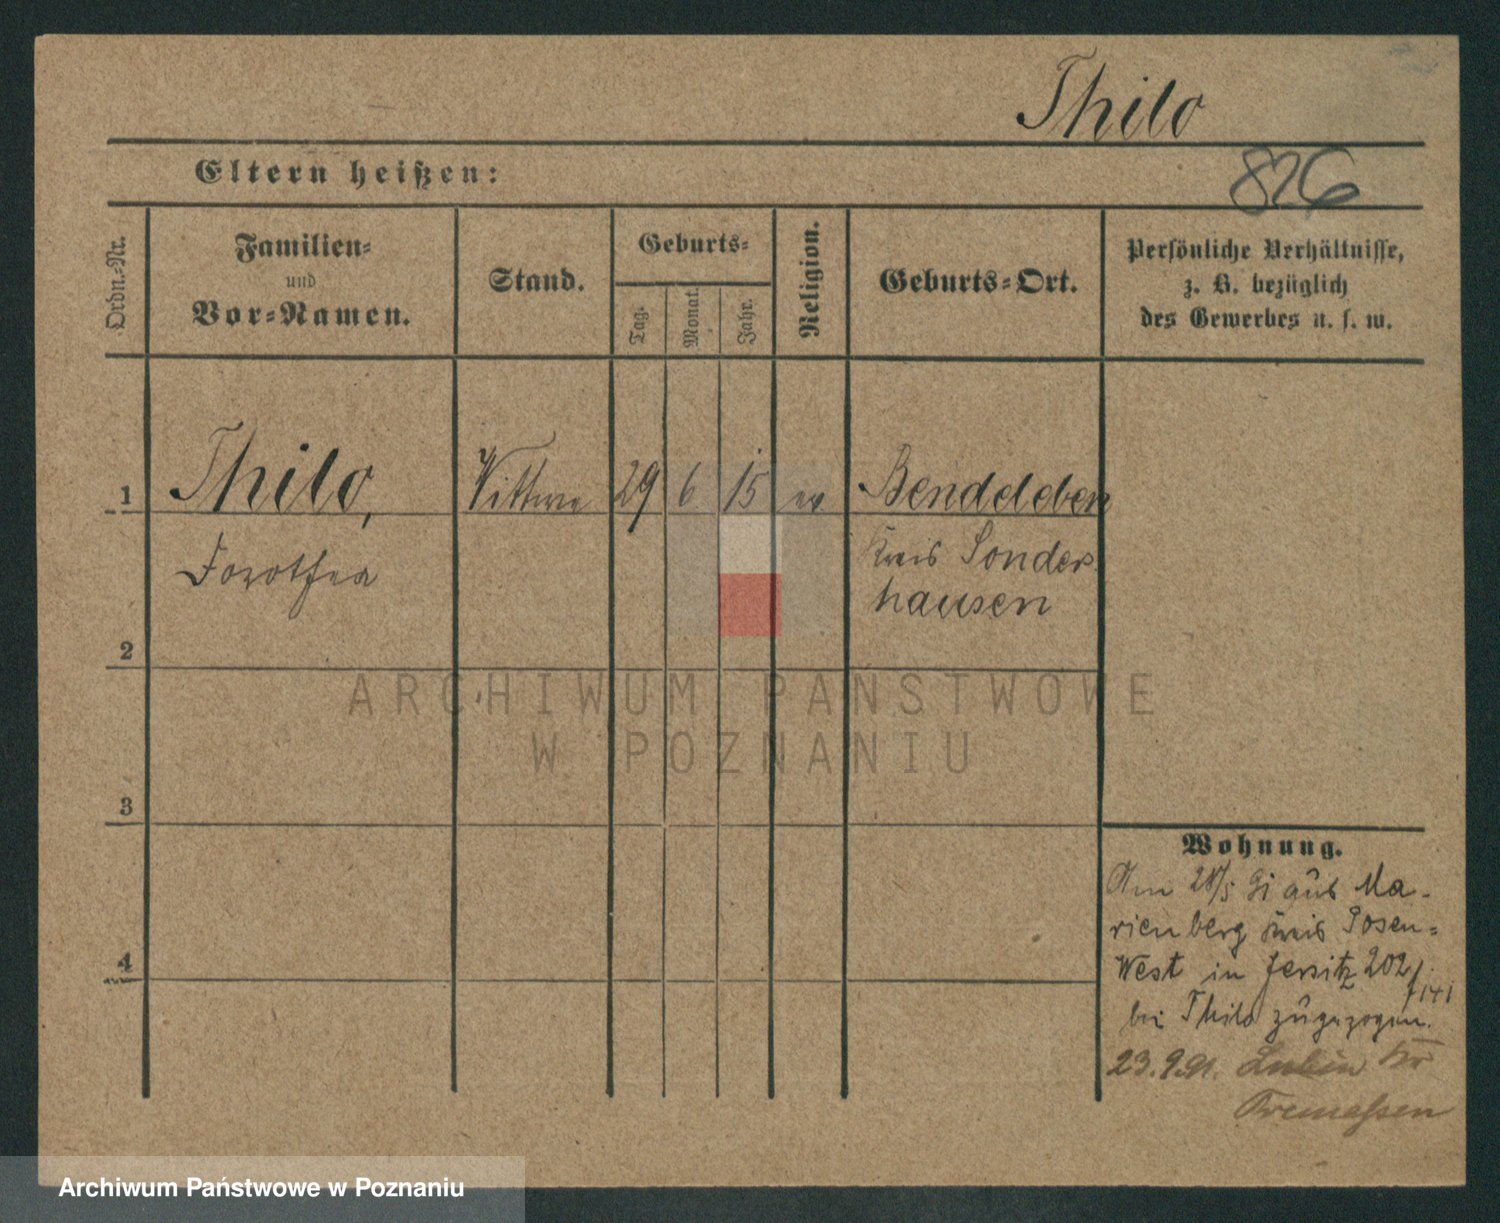 Thilo
826
Eltern heißen:
Ordn.-Nr.
Familien-
und
Vor-Namen.
Stand.
Geburts-
Tag.
Monat.
Jahr.
Religion.
Geburts-Ort.
Persönliche Verhältnisse,
z. B. bezüglich
des Gewerbes u. s. w.
1
Thilo,
Dorothea
Wittwe
29
6
15
ev
Bendeleben
Kreis Sonders
hausen
2
3
4
ARCHIWUM PAŃSTWOWE
W POZNANIU
Wohnung.
Am 28/5 91 aus Ma-
rienberg Kreis Posen-
West in Jersitz 202/
141
bei Thilo zugezogen.
23.9.91. Lubin Kr
Tremessen
Archiwum Państwowe w Poznaniu